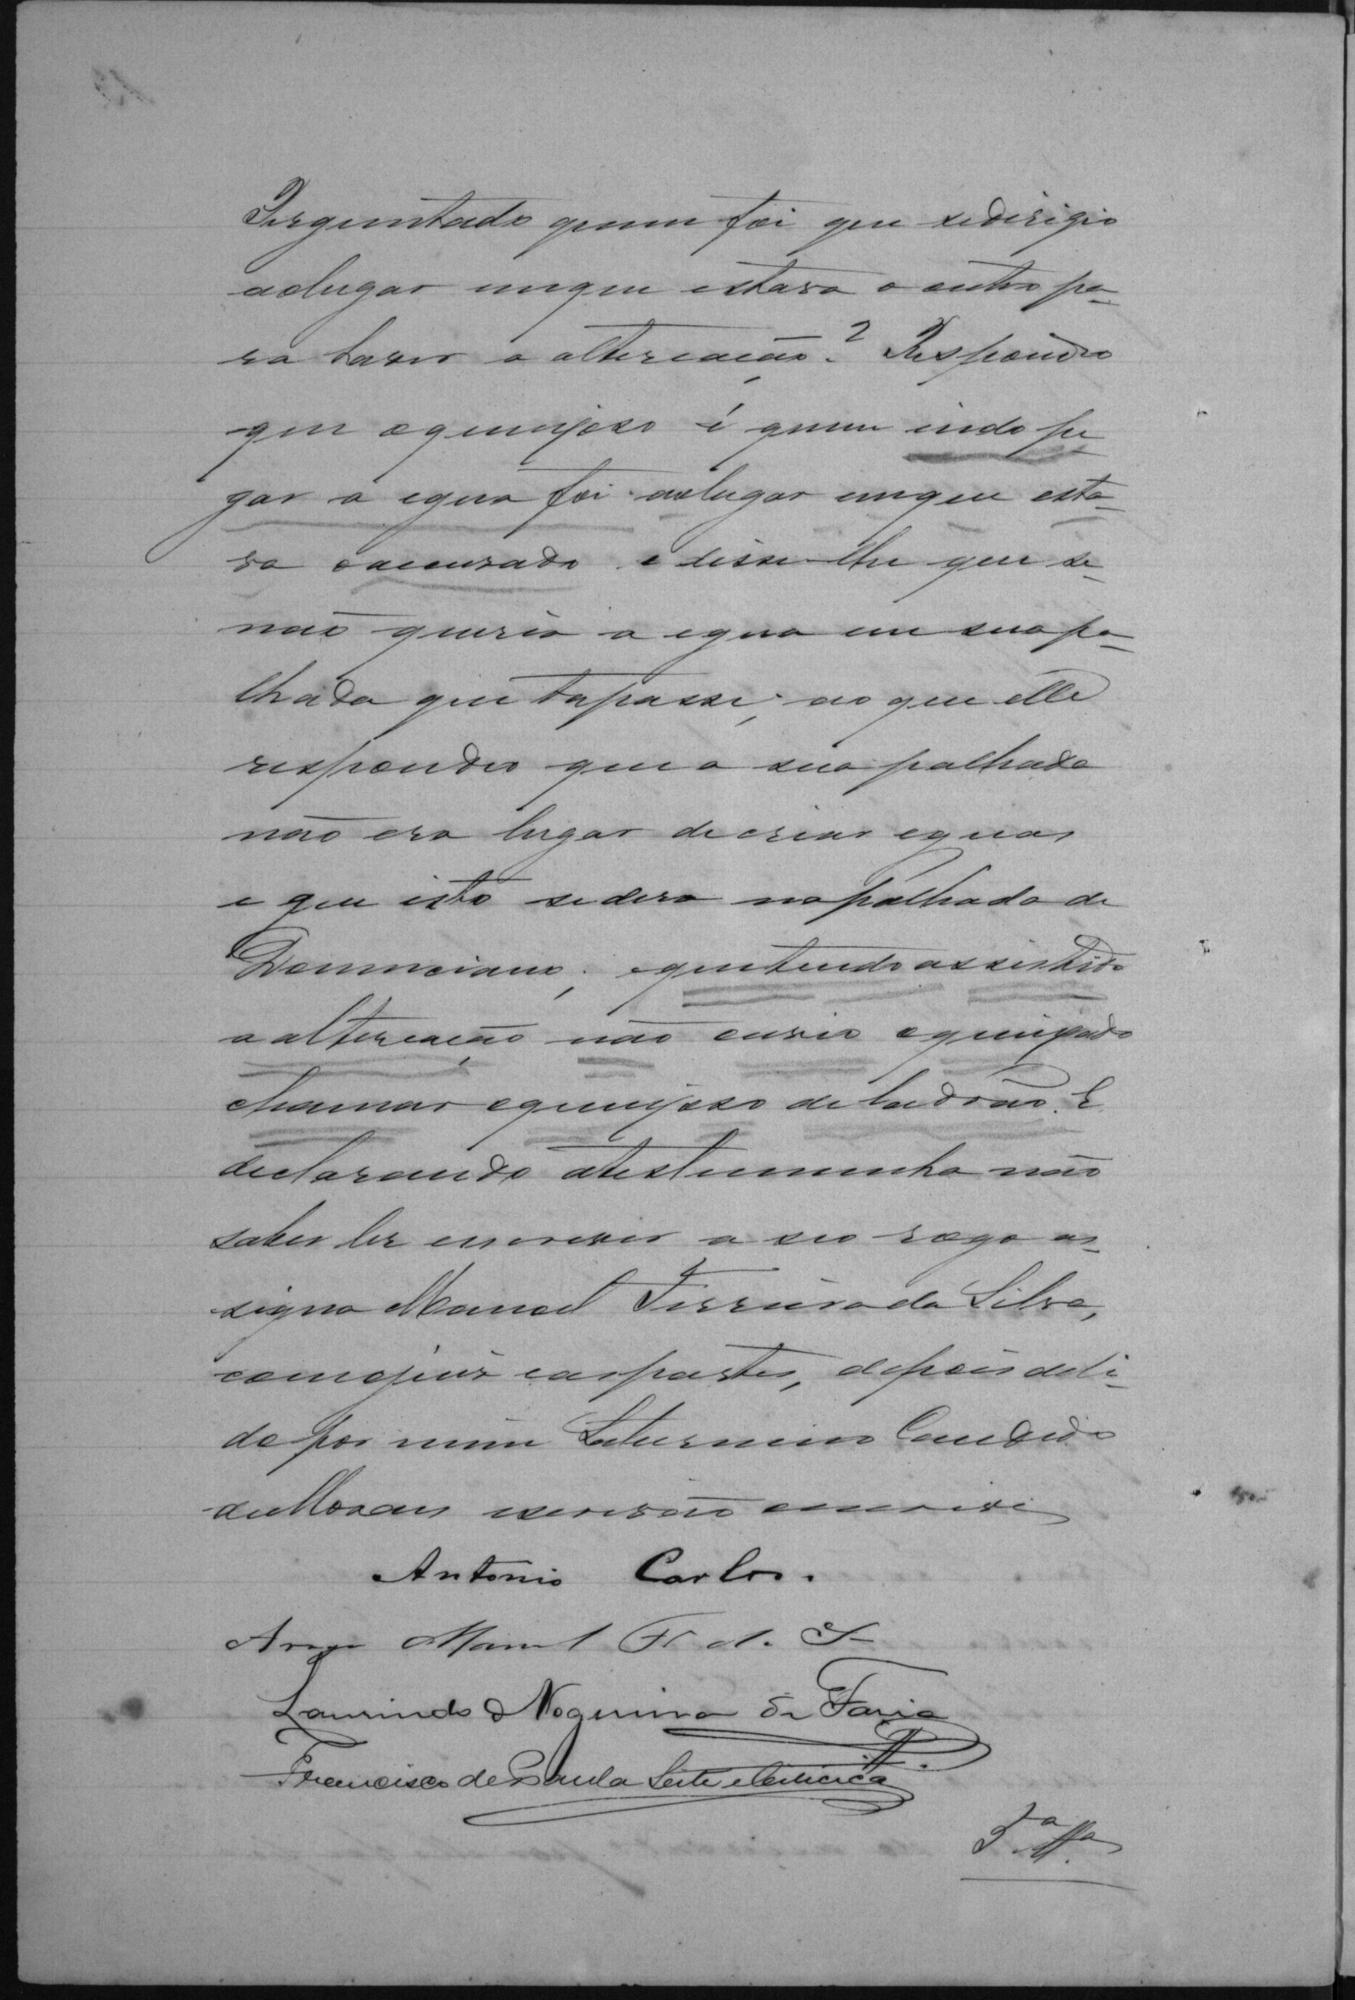 Perguntado quem foi que sedirigio
aolugar emque estava o outro pa-
ra haver a altercação? Respondeo
que oqueixoso é quem indo pe-
gar a egua foi aolugar emque esta-
va oaccusado e disse-lhe que se
não queria a egua em sua pa-
lhada que tapasse; ao que elle
respondeo que a sua palhada
não era lugar decriar eguas
e que isto sedera napalhada de
Domiciano; equetendo assistido
a altercação não ouvio oqueixado
chamar oqueixoso deladrão. E
declarando atestemunha não
saber ler escrever a seo rogo as-
signa Manoel Ferreira da Silva,
comojuiz easpartes, depois deli-
do por mim Saturnino Candido
deMoraes escrivão escrevi
Antonio Carlos.
Arogo Manoel F. d. S.
Laurindo Nogueira de Faria
Francisco de Paula Leite
5ª Ttª